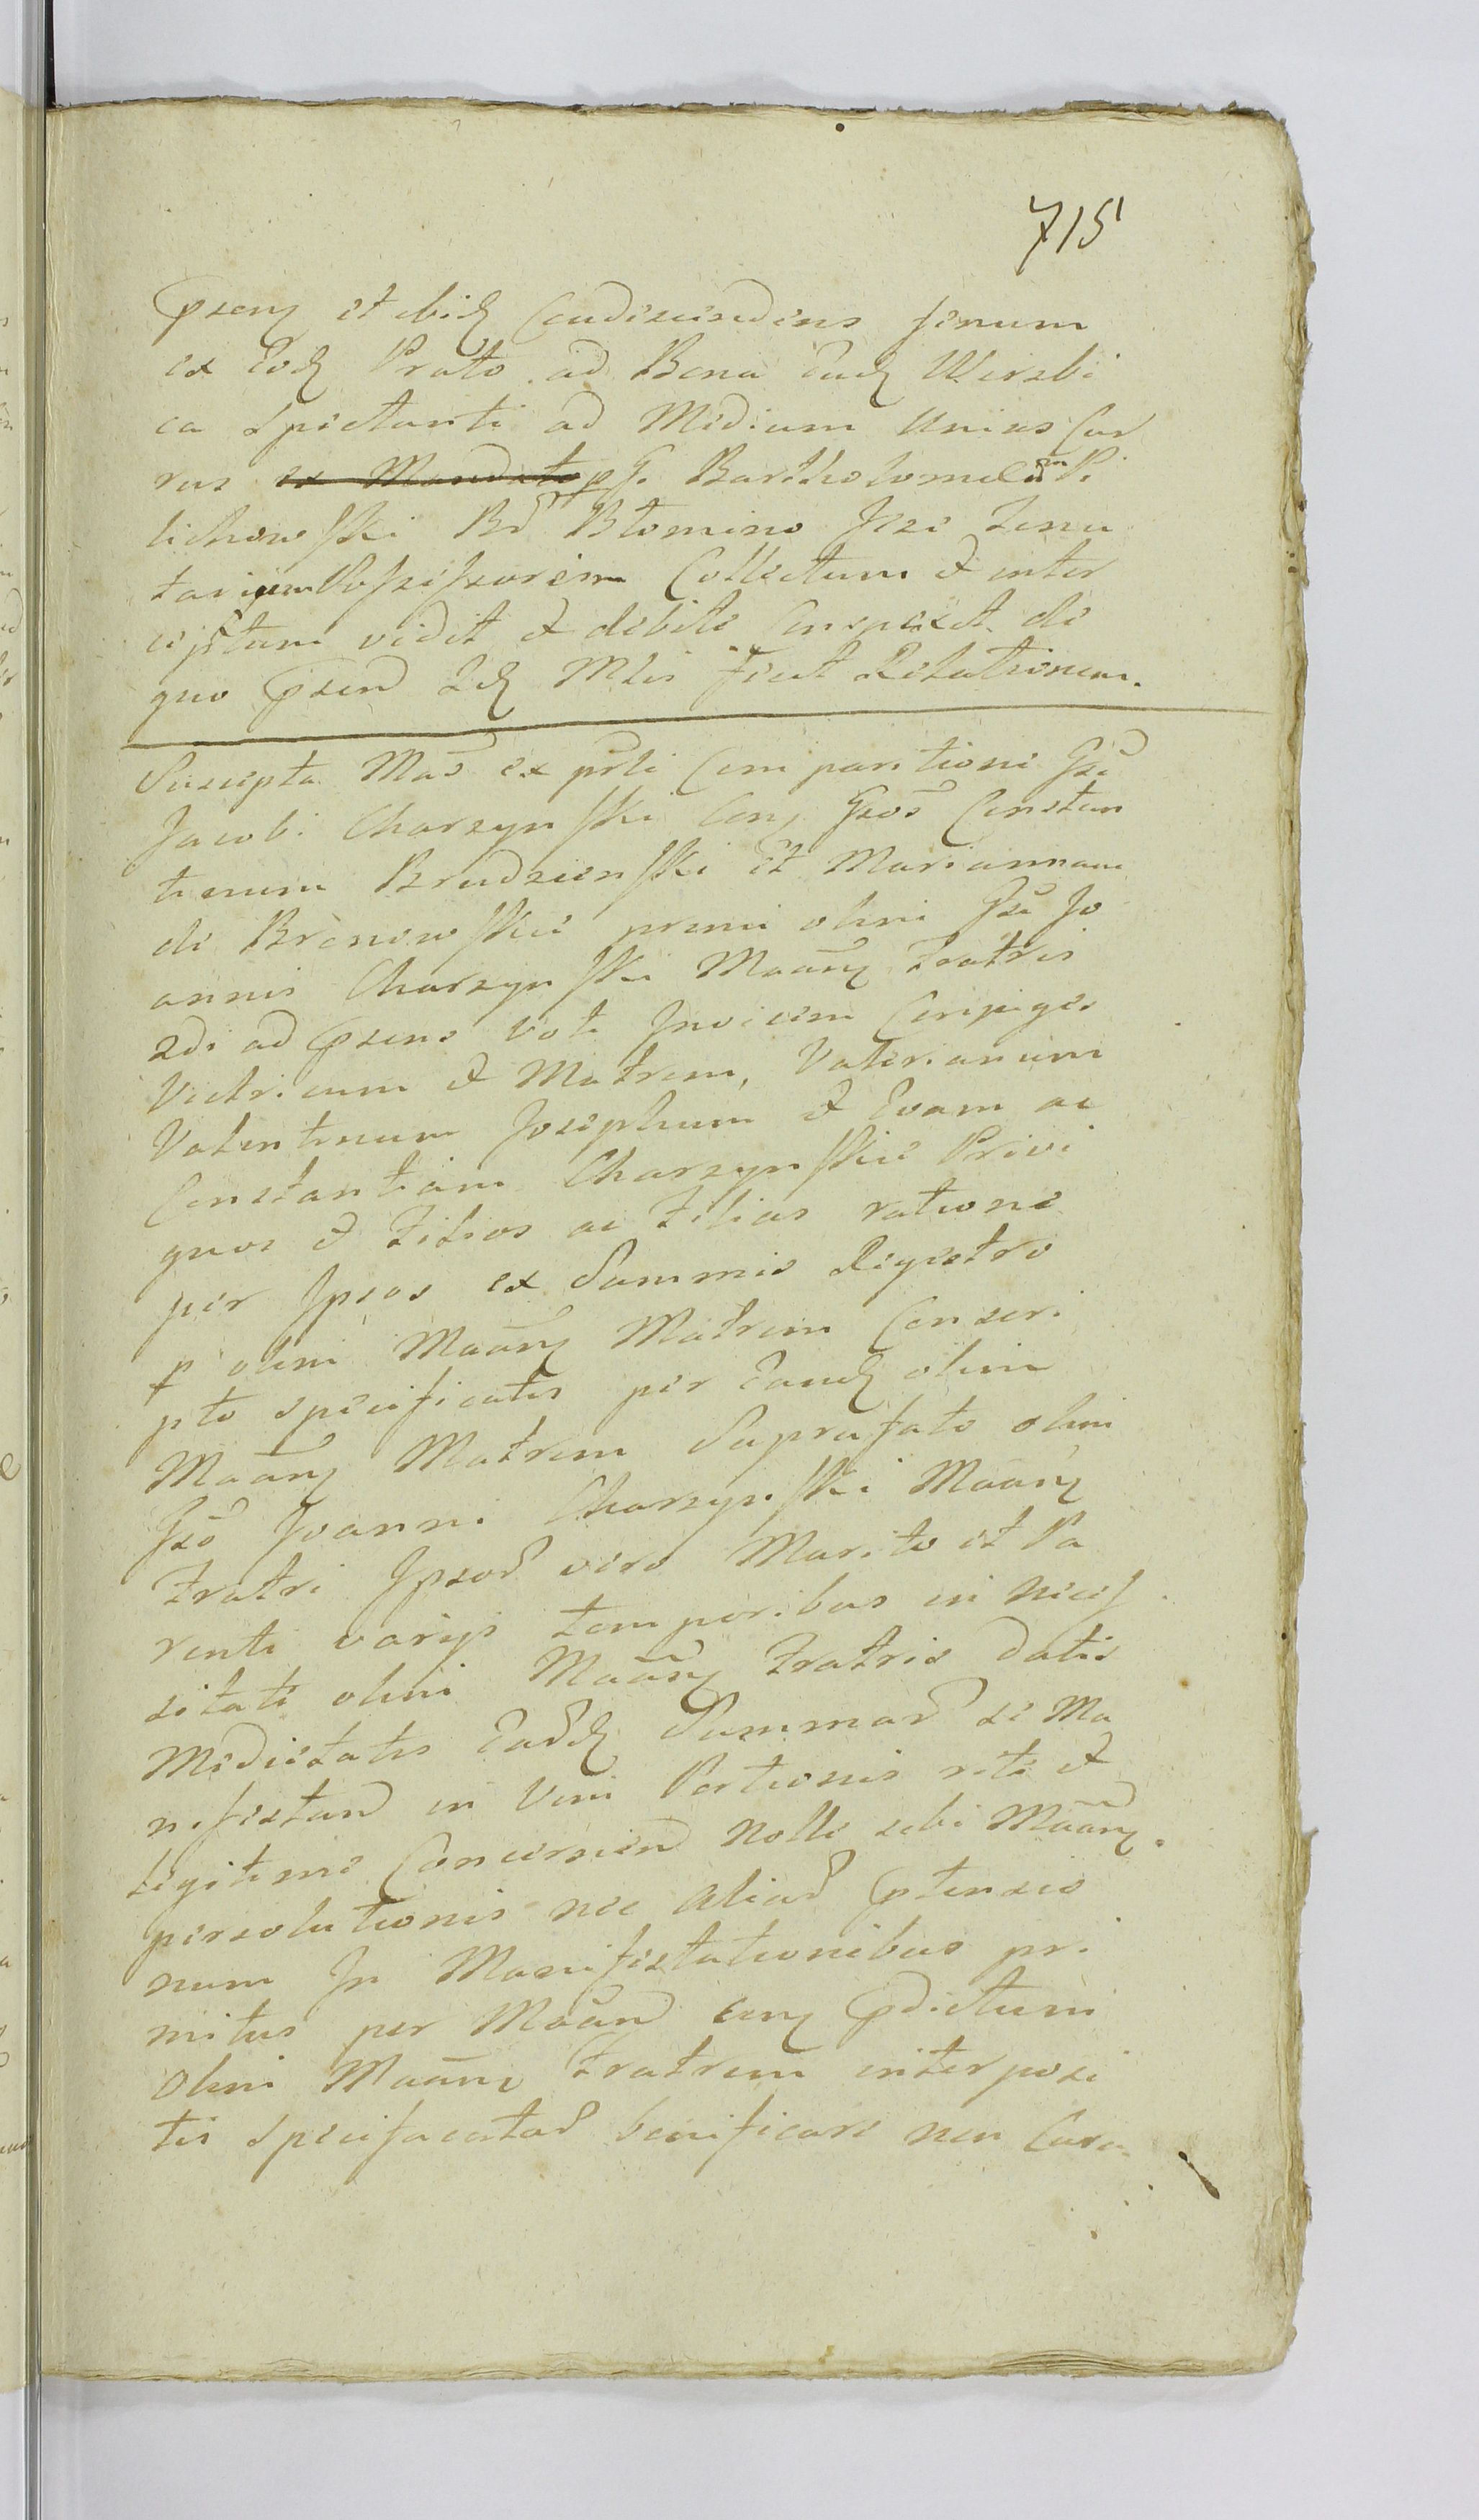 715
Pzeng et ibid Condescendens fenum
ex Eod Prato ad Bona Ead Wierzbi
ca Spectanti ad Medium Unius Cur
rus ex Mandato p G. Bartholomeum Pi
lichowski Bo Btomino Jzo Tenu
tarium Possessorem Collectum et inter
ceptum vidit et debite Conspexit de
quo Pzend Id Mtis fecit Relationem.
Suscepta Mao ex prti Comparitione Gsi
Jacobi Charzynski Cong Gsos Constan
tinum Brudzienski et Mariannam
de Bronowskie primi olim Gsi Jo
annis Charzynski Maang Fratris
2di ad Pzens voti Invicem Conjuges
Victricum et Matrem, Valerianum
Valentinum Josephum et Evam ac
Constantiam Charzynskie Privi
gnos et Filios ac Filias ratione
per Ipsos ex Summis Regestro
p olim Maang Matrem Conscri
pto specificatis per Eand olim
Maang Matrem Suprafato olim
Gso Joanni Charzynski Maang
Fratri Ipsod vero Marito et Pa
renti varijs temporibus in neces
sitate olim Maang Fratris datis
Medietatis Eadd Summad se Ma
nifestand in Vim Portionis rite et
legitime Concernend Nolle sibi Maang.
persolutionis nec Aliad Ptensio
num In Manifestationibus pri
mitus per Maand cong Pdictum
Olim Maang Fratrem interposi
tis Specificatad bonificare non Cura